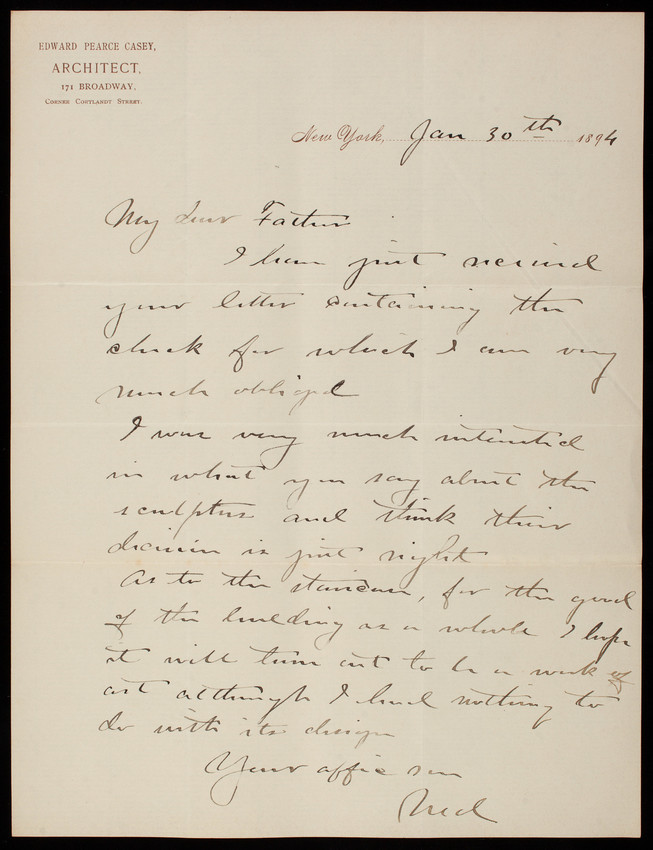 EDWARD PEARCE CASEY,
ARCHITECT,
171 BROADWAY,
CORNER CORTLANDT STREET.
New York, Jan 30th 1894
My dear Father
I have just received
your letter containing the
check for which I am very
much obliged
I was very much interested
in what you say about the
sculptors and think their
decision is just right
As to the staircase, for the good
of the building as a whole I hope
it will turn out to be a work of
art although I had nothing to
do with its design
Your affec son
Ned